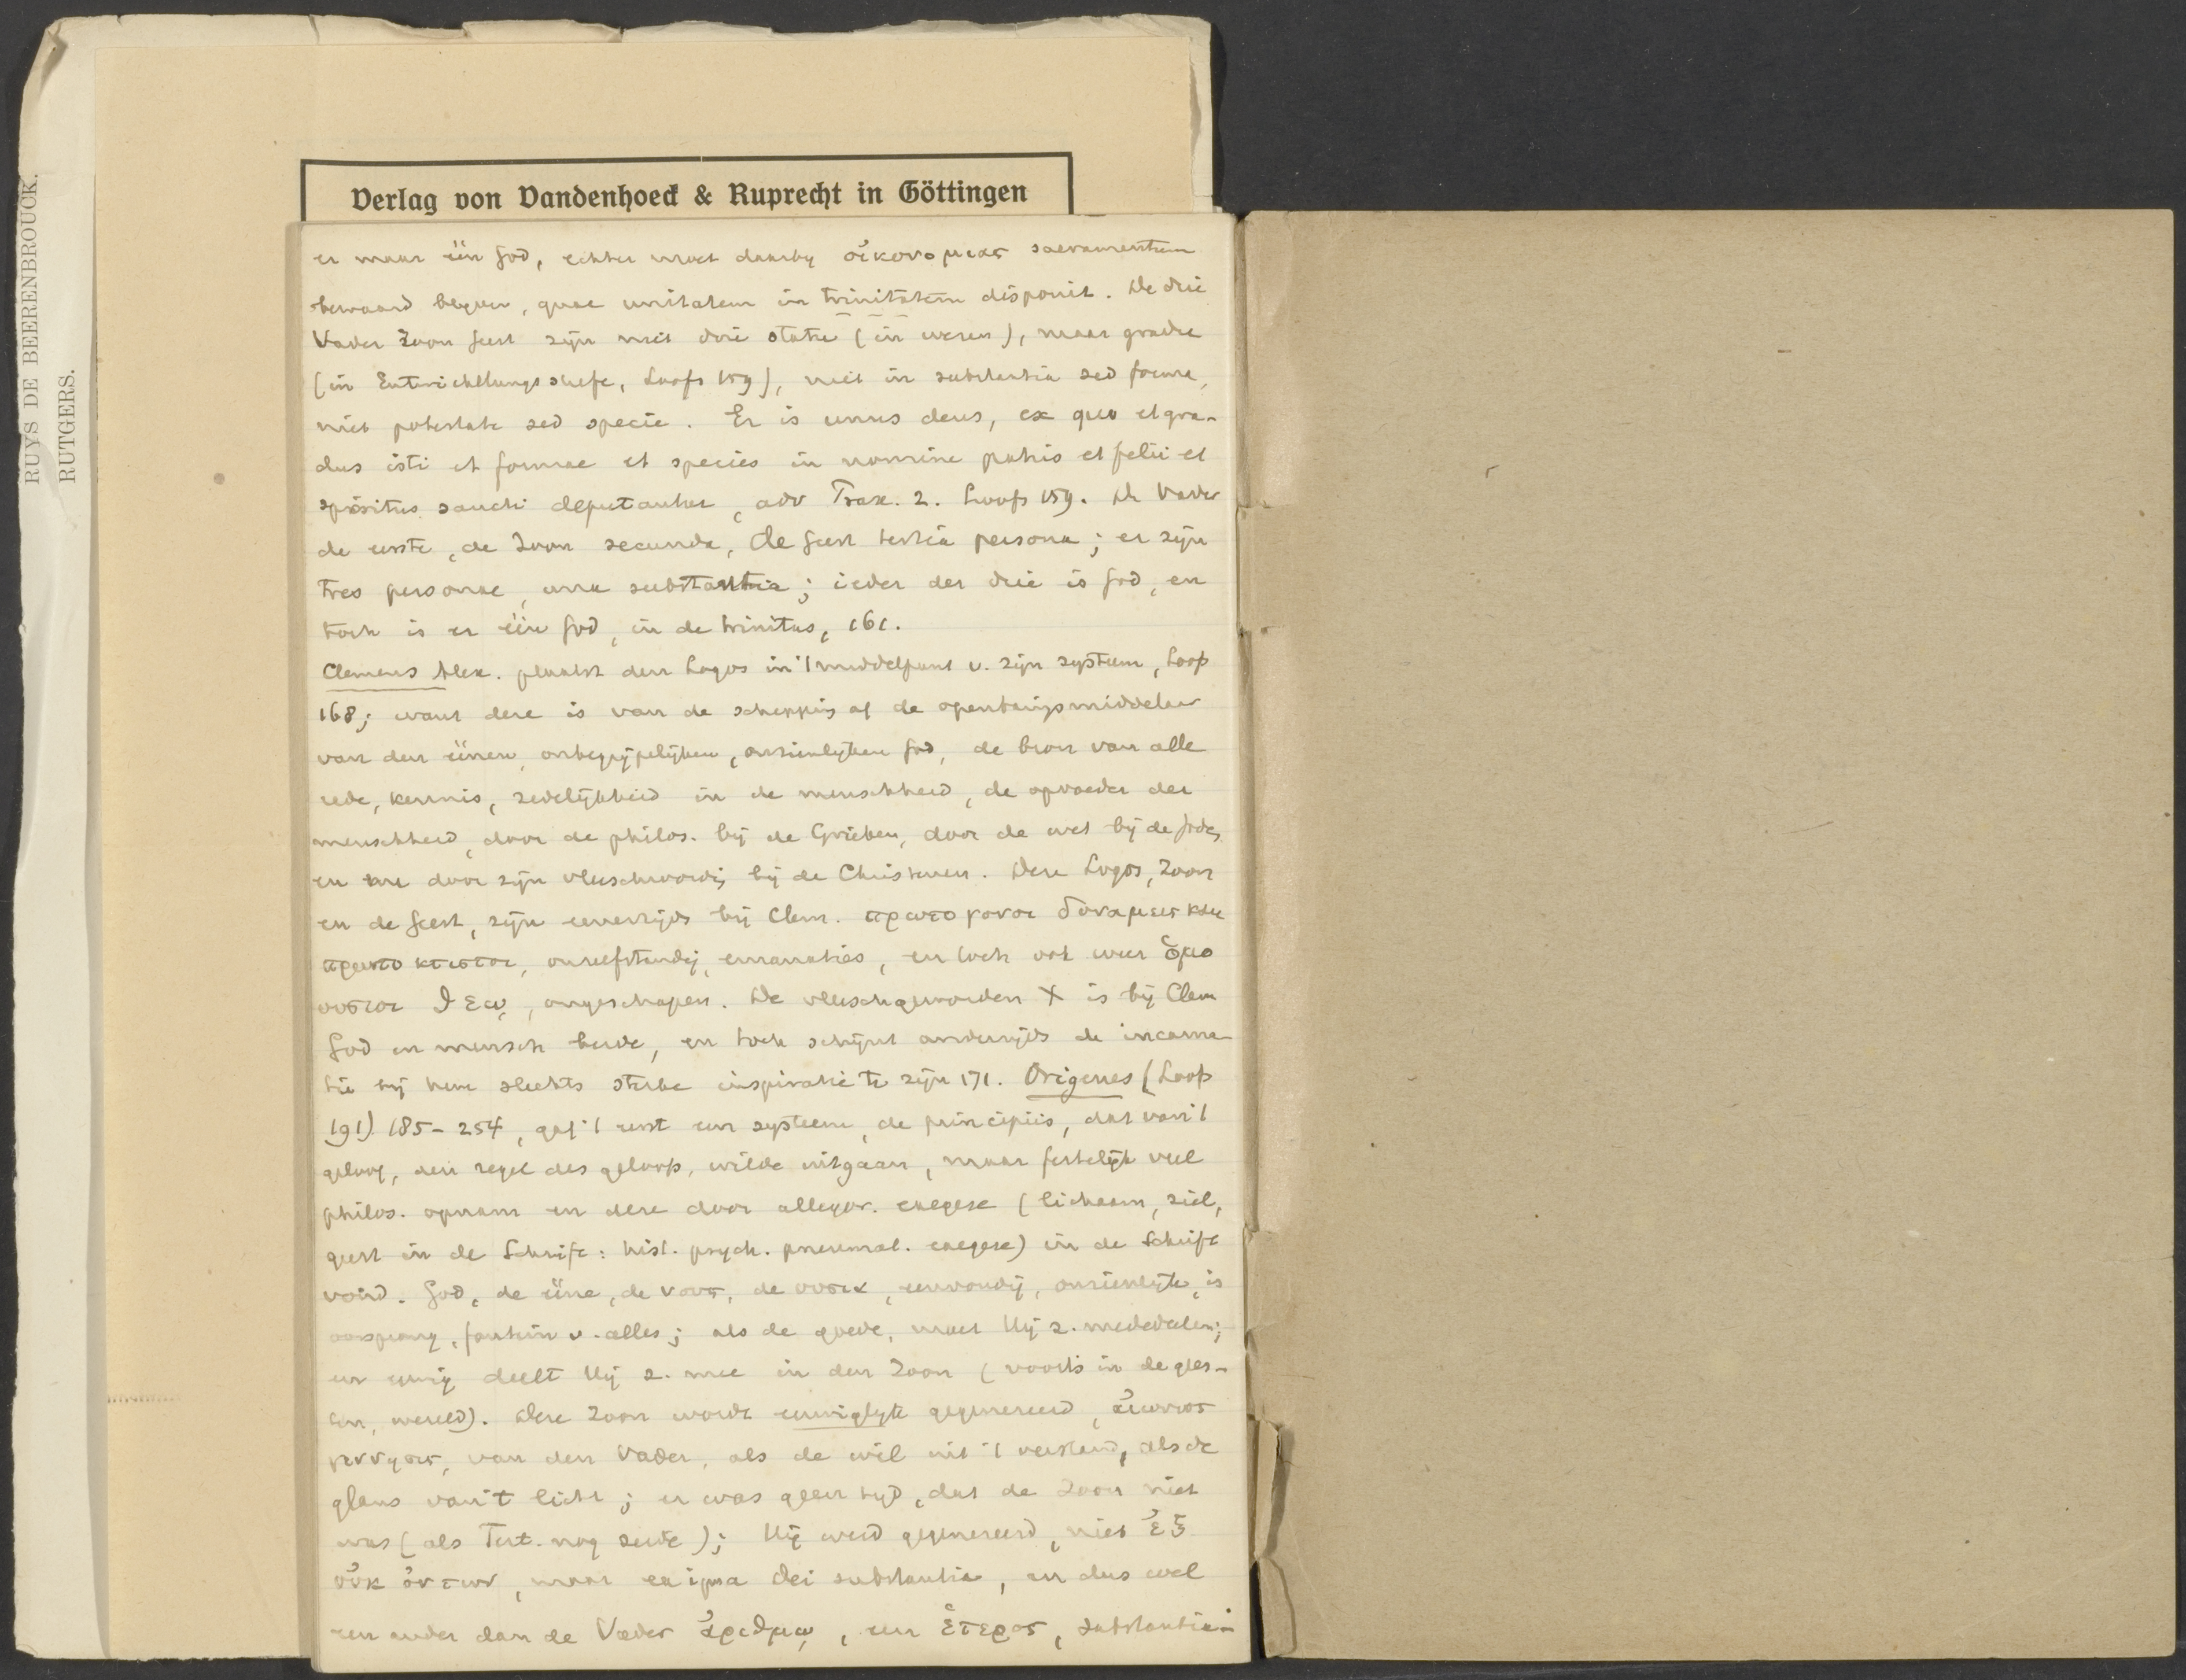 RUYS DE BEERENBROUCK.
RUTGERS.
Verlag von Vandenhoeck & Ruprecht in Göttingen
er maar één God, echter moet daarby οἰκονομιας sacramentum
bewaard blijven, quae unitatem in trinitatem disponit. De drie
Vader Zoon Geest zijn niet drie statu (in wezen), maar gradu
(in Entwicklungsstufe, Loofs 159), niet in substantia sed forma,
niet potestate sed specie. Er is unus deus, ex quo et gra-
dus isti et formae et species in nomine patris et filii et
spiritus sancti deputantur, adv Prax. 2. Loofs 159. De Vader
de eerste, de Zoon secunda, de Geest tertia persona; er zijn
tres personae, una substantia; ieder der drie is God, en
toch is er één God, in de trinitas, 161.
Clemens Alex. plaatst den Logos in 't middelpunt v. zijn systeem, Loofs
168; want deze is van de schepping af de openbaringsmiddelaar
van den éénen, onbegrijpelijken, onzienlijken God, de bron van alle
rede, kennis, zedelijkheid in de menschheid, de opvoeder der
menschheid, door de philos. bij de Grieken, door de wet bij de Joden,
en nu door zijn vleeschwording bij de Christenen. Deze Logos, Zoon
en de Geest, zijn eenerzijds bij Clem. πρωτογονοι δυναμεις και
πρωτοκτιστοι, onzelfstandig, emanaties, en toch ook weer ὁμο
ουσιοι θεῳ, ongeschapen. De vleeschgeworden X is bij Clem
God en mensch beide, en toch schijnt anderzijds de incarna-
tie bij hem slechts sterke inspiratie te zijn 171. Origenes (Loofs
191) 185-254, gaf 't eerst een systeem, de principiis, dat van 't
geloof, den regel des geloofs, wilde uitgaan, maar feitelijk veel
philos. opnam en deze door allegor. exegese (lichaam, ziel,
geest in de Schrift: hist. psych. pneumat. exegese) in de Schrift
vond. God, de ééne, de νους, de ουσια, eenvoudig, onzienlijk, is
oorsprong, fontein v. alles; als de goede, moet Hij z. mededeelen;
en eeuwig deelt Hij z. mee in den Zoon (voorts in de gees-
ten, wereld). Deze Zoon wordt eeuwiglijk gegenereerd, αἰωνιος
γεννησις, van den Vader, als de wil uit 't verstand, als de
glans van 't licht; er was geen tijd, dat de Zoon niet
was (als Tert. nog zeide); Hij werd gegenereerd, niet ἐξ
οὐκ ὀντων, maar ex ipsa Dei substantia, en dus wel
een ander dan de Vader ἀριθμῳ, een ἑτερος, substantia-